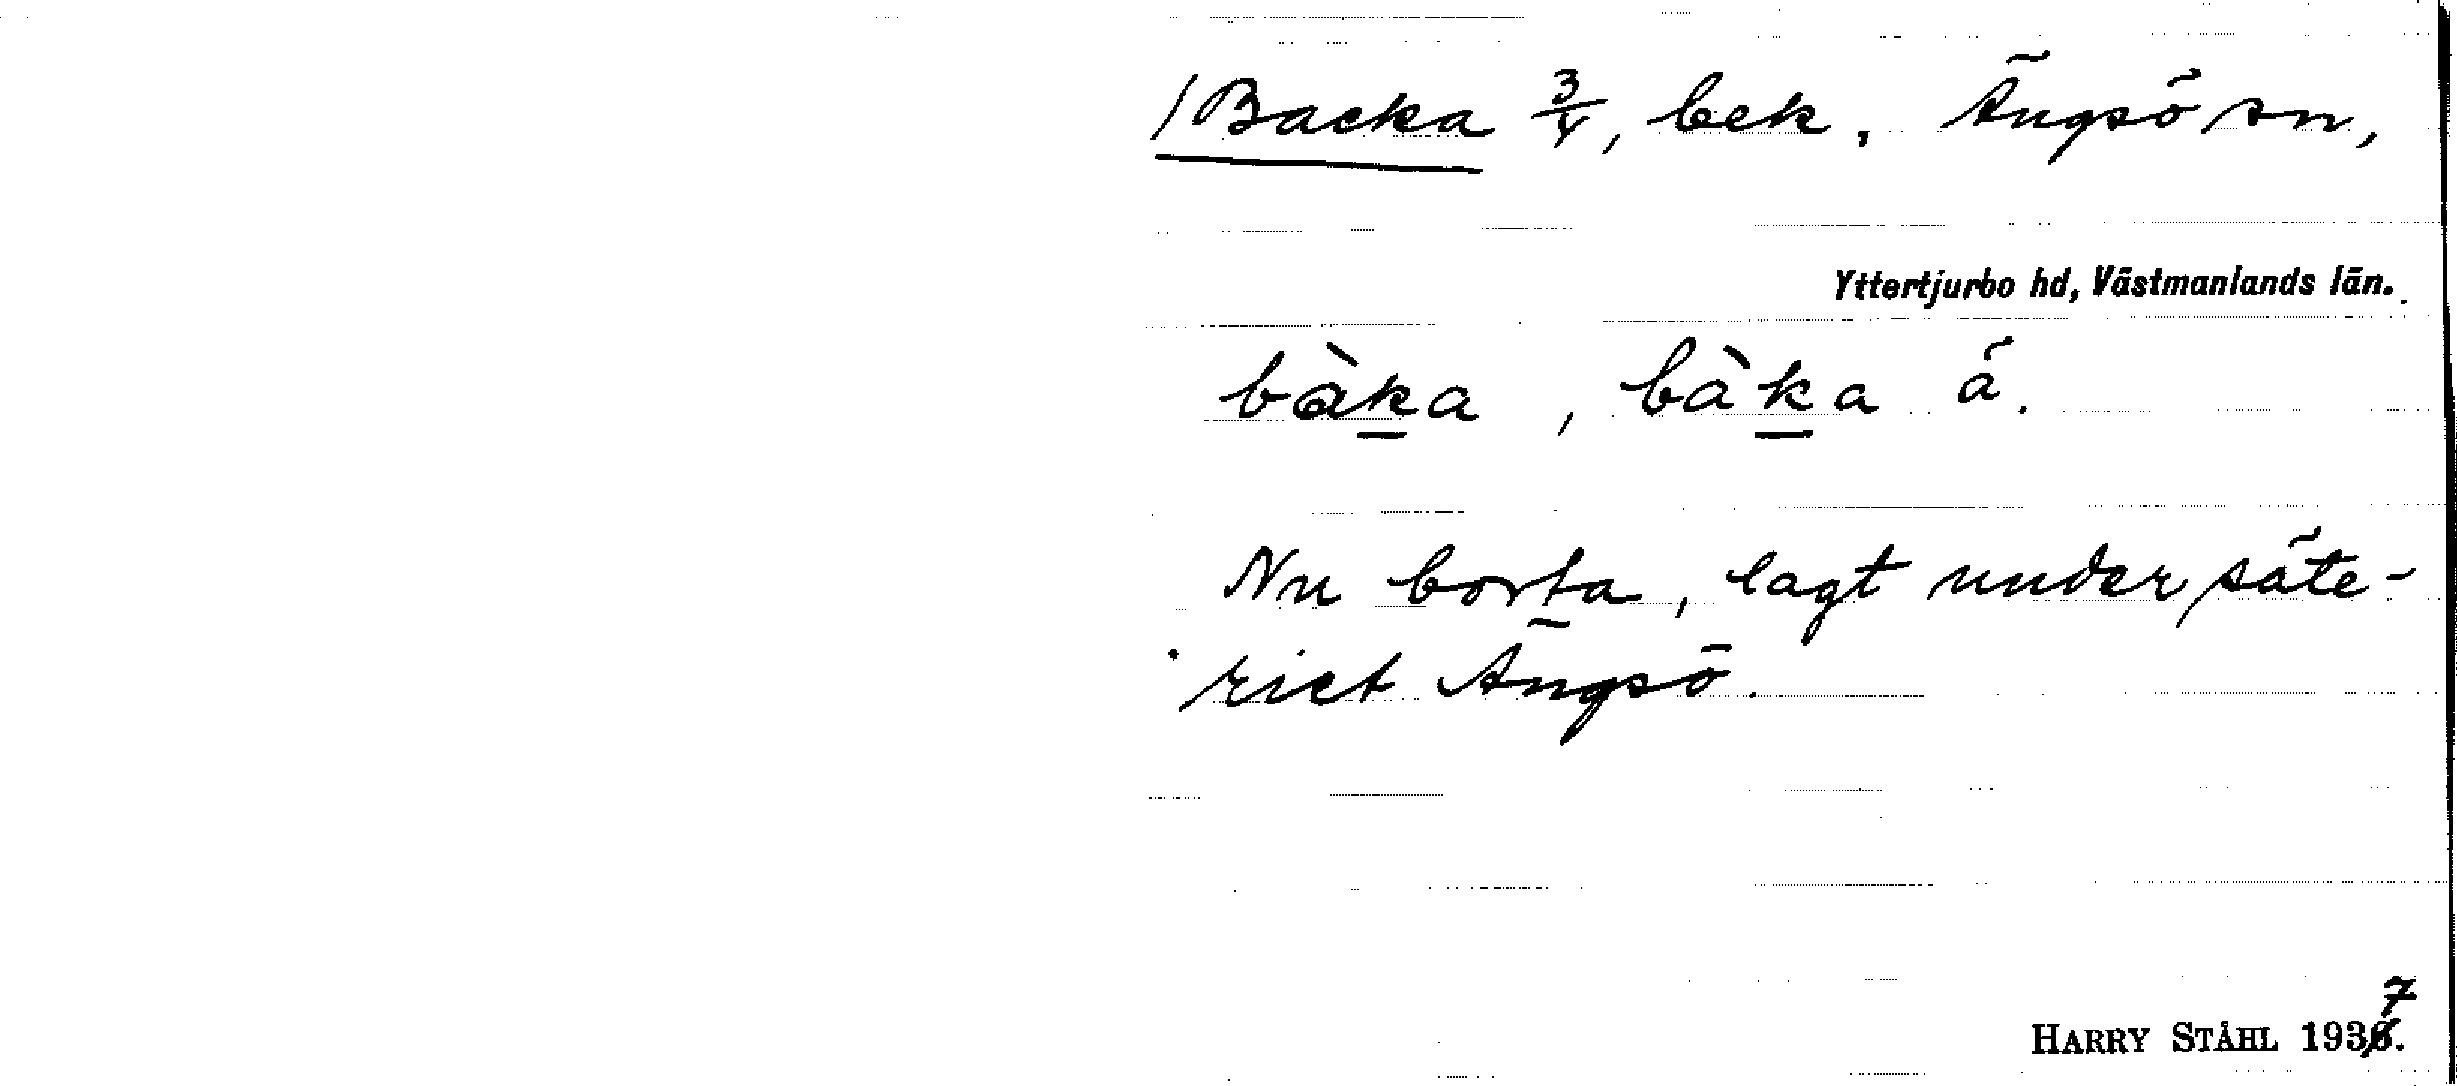 /Backa 3/4, bek. Ängsö sn,
Yttertjurbo hd, Västmanlands län.
bàka, bàka á.
Nu borta, lagt under säte-
riet Ängsö.
7
HARRY STÅHL 1936.